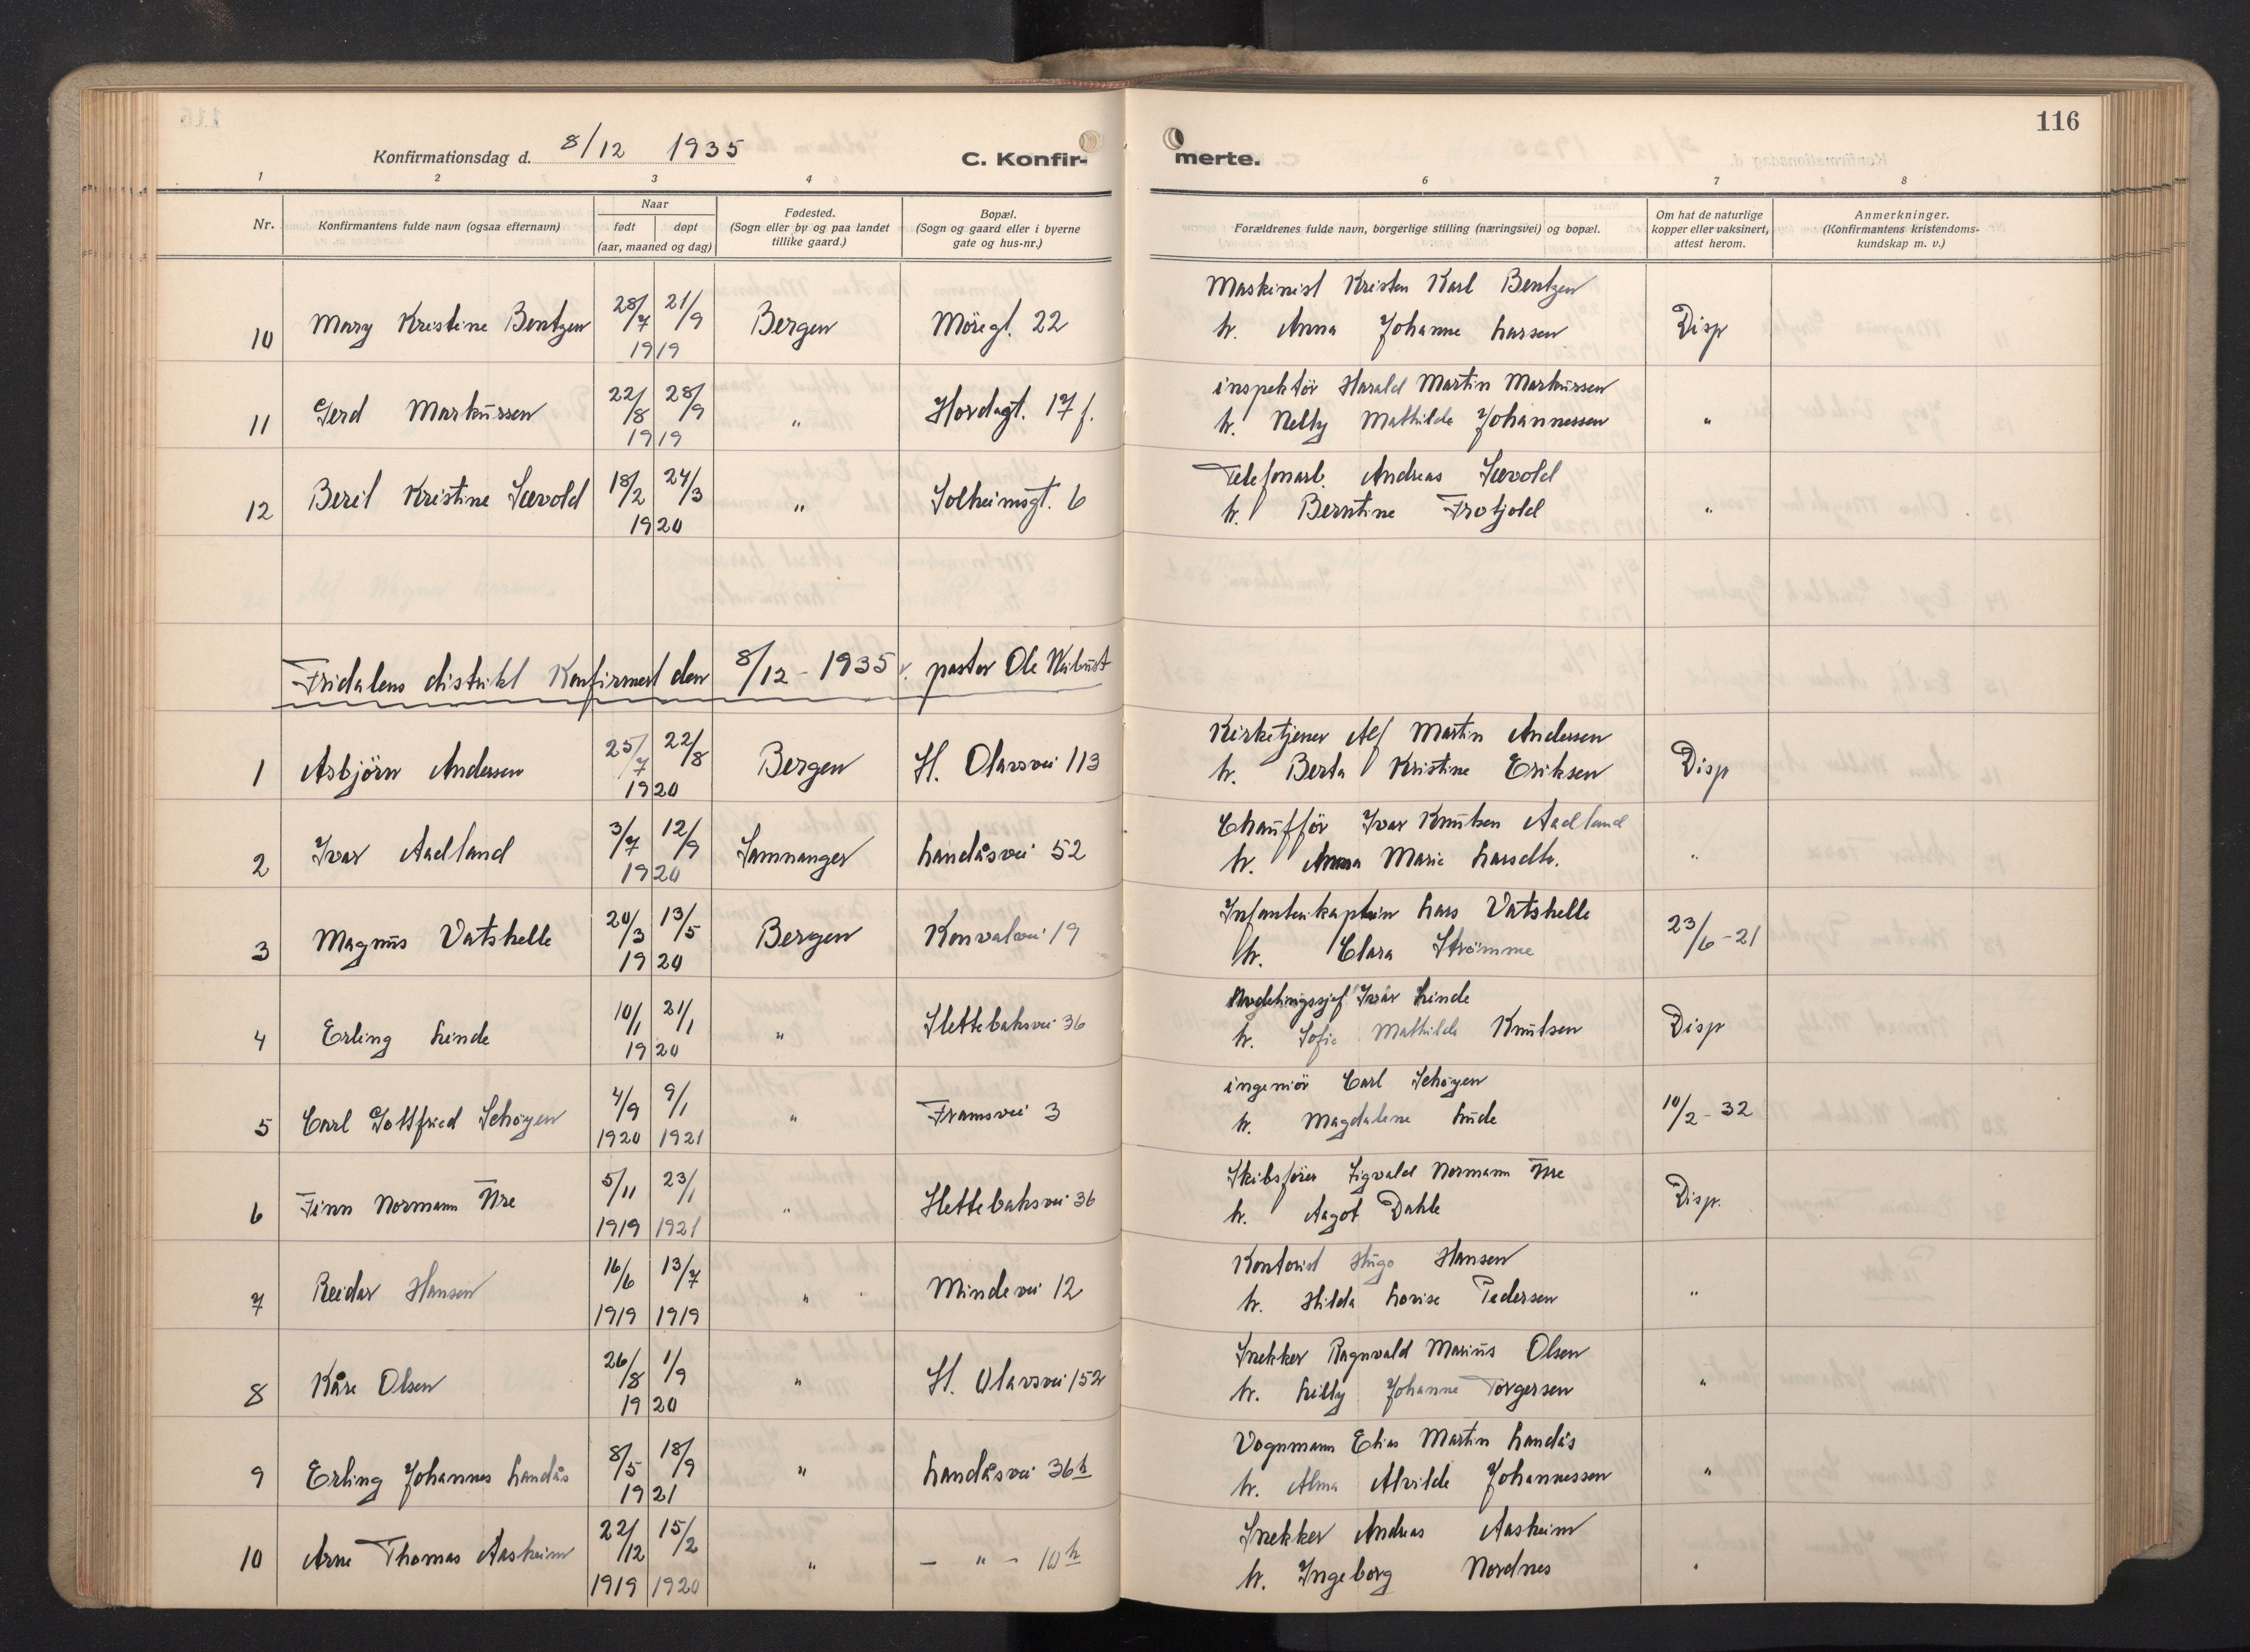 116
Konfirmationsdag d. 8/12 1935
C. Konfir-
merte.
1 2 3 4
6 7 8
Nr.
Konfirmantens fulde navn (ogsaa efternavn)
Naar
født
døpt
(aar, maaned og dag)
Fødested.
(Sogn eller by og paa landet
tillike gaard.)
Bopæl.
(Sogn og gaard eller i byerne
gate og hus-nr.)
Forældrenes fulde navn, borgerlige stilling (næringsvei) og bopæl.
Om hat de naturlige
kopper eller vaksinert,
attest herom.
Anmerkninger.
(Konfirmantens kristendoms-
kundskap m. v.)
10 Mary Kristine Bentzen 28/7 21/9 1919 Bergen Möregt. 22
Maskinist Kristen Karl Bentzen
h. Anna Johanne Larsen Disp
11 Gerd Markussen 22/8 28/9 1919 " Hordagt. 17 f.
inspektör Harald Martin Markussen
h. Nelly Mathilde Johannessen "
12 Beril Kristine Sævold 18/2 24/3 1920 " Solheimsgt. 6
Telefonarb. Andreas Sævold
h. Berntine Trotjold "
Fridalens distrikt Konfirmert den 8/12 - 1935 v. pastor Ole Weibust
1 Asbjörn Andersen 25/7 22/8 1920 Bergen St. Olavsvei 113
Kirketjener Alf Martin Andersen
h. Berta Kristine Eriksen Disp
2 Ivar Aadland 3/7 12/9 1920 Samnanger Landåsvei 52
Chaufför Ivar Knutsen Aadland
h. Anna Marie Larsdtr. "
3 Magnus Vatshelle 20/3 13/5 1920 Bergen Konvalvei 19
Infanterikaptein Lars Vatshelle
h. Clara Strömme 23/6 - 21
4 Erling Linde 10/1 21/1 1920 " Slettebaksvei 36
Avdelingssjef Ivar Linde
h. Sofie Mathilde Knutsen Disp
5 Carl Gottfried Schöyen 4/9 1920 9/1 1921 " Framsvei 3
ingeniör Carl Schöyen
h. Magdalene Lude 10/2 - 32
6 Finn Normann Ure 5/11 1919 23/1 1921 " Slettebaksvei 36
Skibsförer Sigvald Normann Ure
h. Aagot Dahle Disp.
7 Reidar Hansen 16/6 1919 13/7 1919 " Mindevei 12
Kontorist Hugo Hansen
h. Hilda Lovise Pedersen "
8 Kåre Olsen 26/8 1/9 1920 " St. Olavsvei 152
Snekker Ragnvald Marius Olsen
h. Lilly Johanne Torgersen "
9 Erling Johannes Landås 8/5 18/9 1921 " Landåsvei 36 h
Vognmann Elias Martin Landås
h. Alma Alvilde Johannessen "
10 Arne Thomas Aasheim 22/12 1919 15/2 1920 " - " - 10 h
Snekker Andreas Aasheim
h. Ingeborg Nordnes "